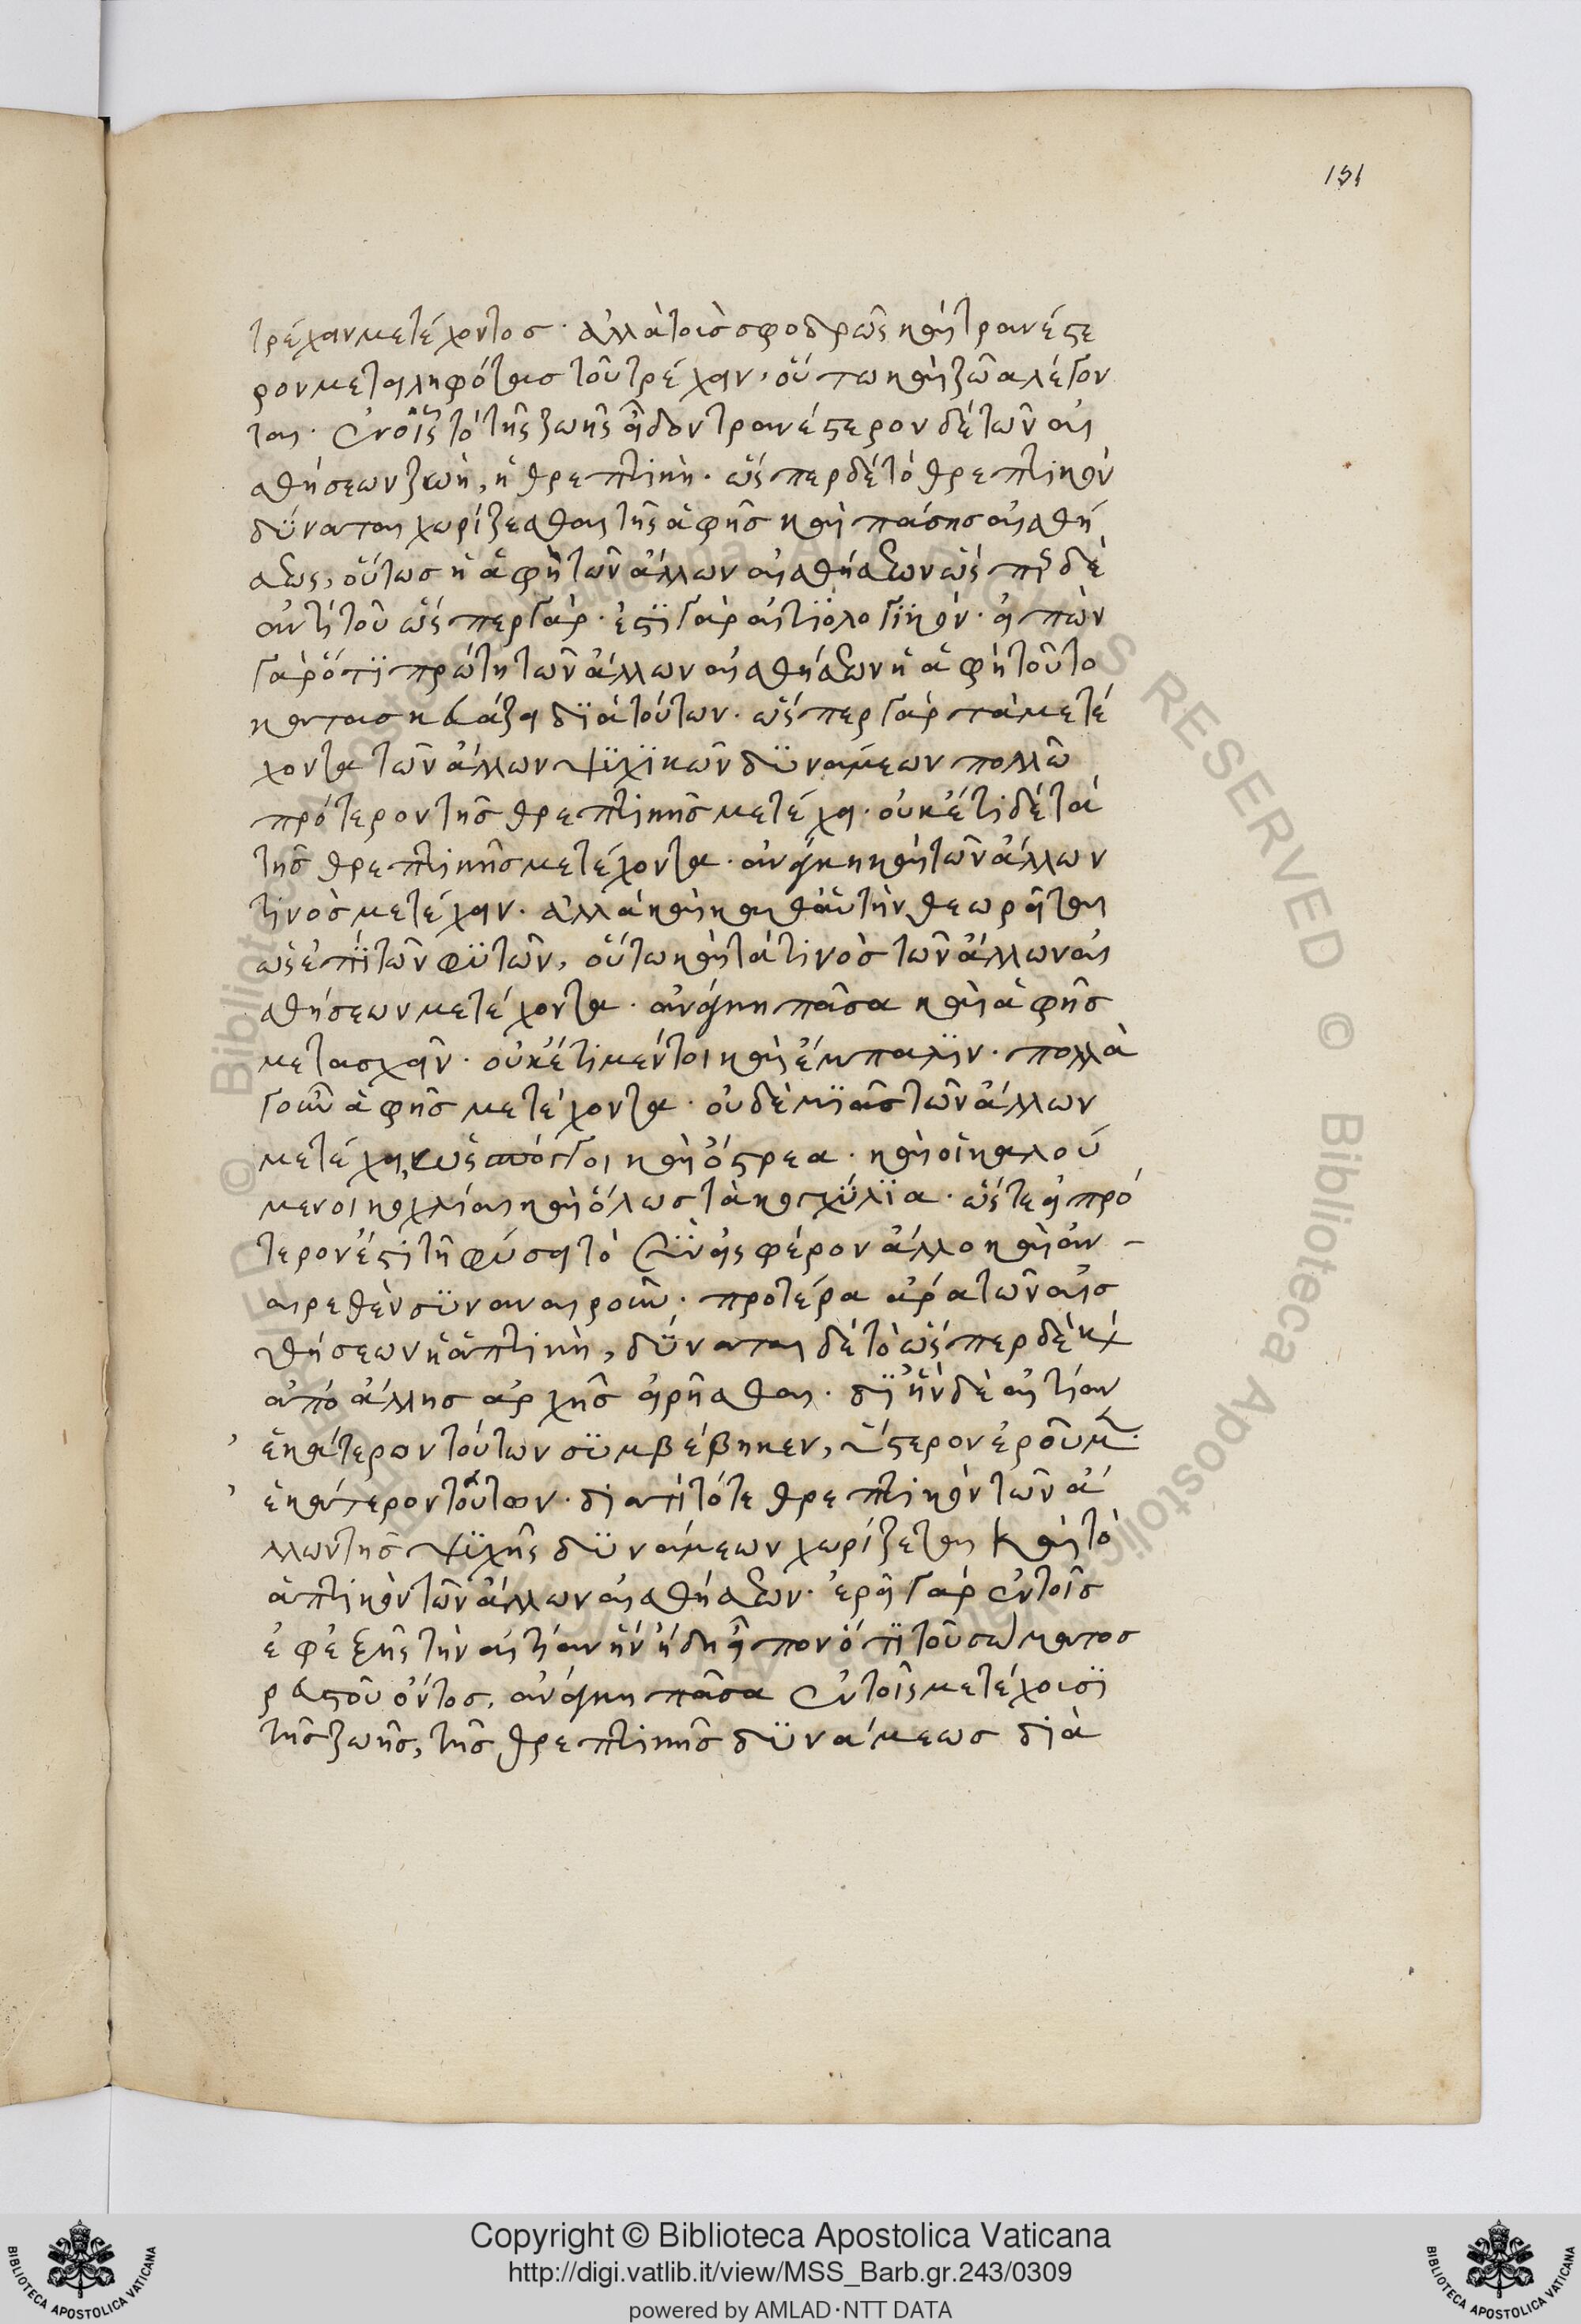 151
τρέχειν μετέχοντος· ἀλλὰ τοῖς σφοδρῶς καὶ τρανέστε
ρον μεταληφόται τοῦ τρέχειν, οὕτω καὶ ζῶα λέγον
ται· ἐν οἷς τὸ τῆς ζωῆς εἶδον τρανέστερον δὲ τῶν αἰ
σθήσεων ζωὴ, ἡ θρεπτικὴ· ὥσπερ δὲ τὸ θρεπτικὸν
δύναται χωρίζεσθαι τῆς ἁφῆς καὶ πάσης αἰσθή
σεως, οὕτως ἡ ἁφὴ τῶν ἄλλων αἰσθήσεων ὥσπερ δὲ
ἀντὶ τοῦ ὥσπερ γάρ· ἔστι γὰρ αἰτιολογικόν· εἰπὼν
γὰρ ὅτι πρώτη τῶν ἄλλων αἰσθήσεων ἡ ἁφὴ τοῦτο
κατασκευάζει διὰ τούτων· ὥσπερ γὰρ τὰ μετέ
χοντα τῶν ἄλλων ψυχικῶν δυνάμεων πολλῶ
πρότερον τῆς θρεπτικῆς μετέχει· οὐκέτι δὲ τὰ
τῆς θρεπτικῆς μετέχοντα· ἀνάγκη καὶ τῶν ἄλλων
τινὸς μετέχειν· ἀλλὰ καὶ καθ' αὑτὴν θεωρεῖται
ὡς ἐπὶ τῶν φυτῶν, οὕτω καὶ τὰ τινὸς τῶν ἄλλων αἰ
σθήσεων μετέχοντα· ἀνάγκη πᾶσα καὶ ἁφῆς
μετασχεῖν· οὐκέτι μέντοι καὶ ἔμπαλιν· πολλὰ
γοῦν ἁφῆς μετέχοντα· οὐδὲ μιᾶς τῶν ἄλλων
μετέχει, ὡς σπόγγοι καὶ ὄστρεα· καὶ οἱ καλού
μενοι κοχλίαι καὶ ὅλως τὰ κογχύλια· ὥστε εἰ πρό
τερον ἐστὶ τῆ φύσει τὸ συνεισφέρον ἄλλο καὶ ἀν-
αιρεθὲν συναναιροῦν· προτέρα ἄρα τῶν αἰσ
θήσεων ἡ ἁπτικὴ, δύναται δὲ τὸ ὥσπερ δὲ κ
ἀπὸ ἄλλης ἀρχῆς εἰρῆσθαι· δι' ἣν δὲ αἰτίαν
ἑκάτερον τούτων συμβέβηκεν, ὕστερον ἐροῦμεν·
ἑκάτερον τούτων· διατί τότε θρεπτικὸν τῶν ἄ
λλων τῆς ψυχῆς δυνάμεων χωρίζεται καὶ τὸ
ἁπτικὸν τῶν ἄλλων αἰσθήσεων· ἐρεῖ γὰρ ἐν τοῖς
ἐφεξῆς τὴν αἰτίαν ἣν ἤδη εἶπον ὅτι τοῦ σώματος
ῥευστοῦ ὄντος, ἀνάγκη πᾶσα ἐν τοῖς μετέχουσι
τῆς ζωῆς, τῆς θρεπτικῆς δυνάμεως διὰ
Copyright © Biblioteca Apostolica Vaticana
http://digi.vatlib.it/view/MSS_Barb.gr.243/0309
powered by AMLAD·NTT DATA